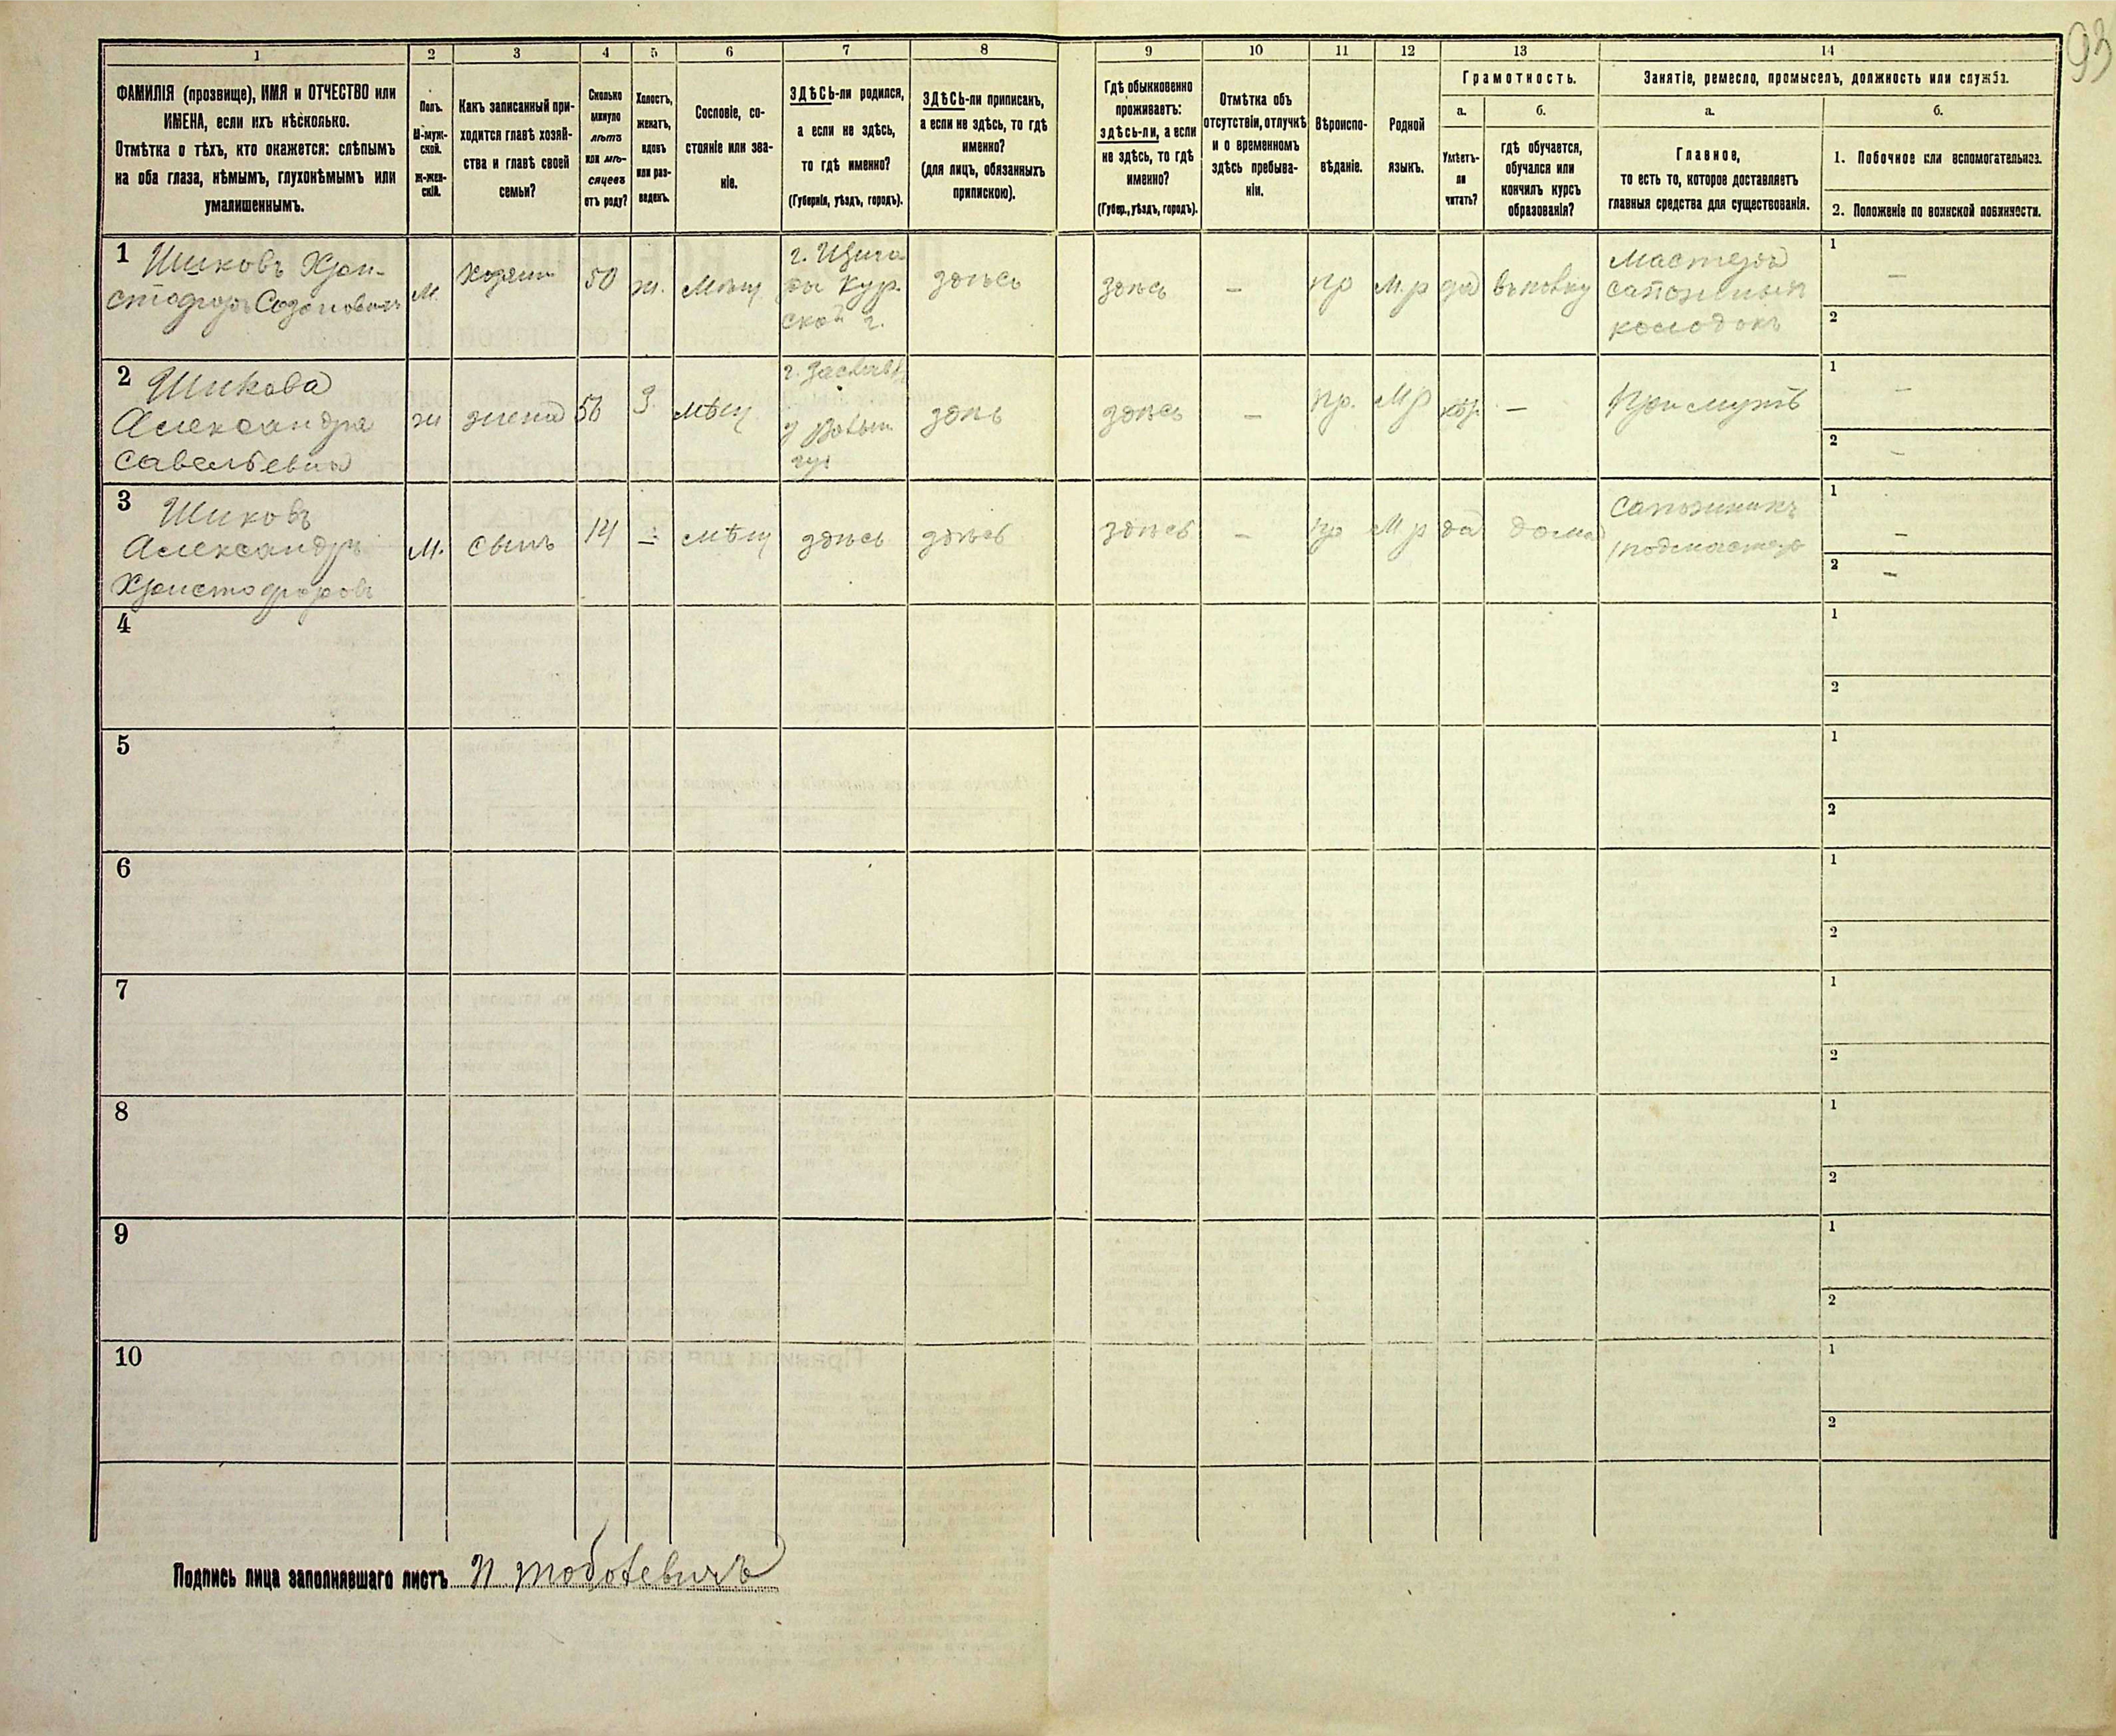 93
1
2
3
4
5
6
7
8
9
10
11
12
13
14
ФАМИЛІЯ (прозвище), ИМЯ и ОТЧЕСТВО или
ИМЕНА, если ихъ нѣсколько.
Отмѣтка о тѣхъ, кто окажется: слѣпымъ
на оба глаза, нѣмымъ, глухонѣмымъ или
умалишеннымъ.
Полъ.
М-муж-
ской.
Ж-жен-
скій.
Какъ записанный при-
ходится главѣ хозяй-
ства и главѣ своей
семьи?
Сколько
минуло
лѣтъ
или мѣ-
сяцевъ
отъ роду?
Холостъ,
женатъ,
вдовъ
или раз-
веденъ.
Сословіе, со-
стояніе или зва-
ніе.
ЗДѢСЬ-ли родился,
а если не здѣсь,
то гдѣ именно?
(Губернія, уѣздъ, городъ).
ЗДѢСЬ-ли приписанъ,
а если не здѣсь, то гдѣ
именно?
(для лицъ, обязанныхъ
припискою).
Гдѣ обыкновенно
проживаетъ:
здѣсь-ли, а если
не здѣсь, то гдѣ
именно?
(Губер., уѣздъ, городъ).
Отмѣтка объ
отсутствіи, отлучкѣ
и о временномъ
здѣсь пребыва-
ніи.
Вѣроиспо-
вѣданіе.
Родной
языкъ.
Грамотность.
а.
Умѣетъ-
ли
читать?
б.
гдѣ обучается,
обучался или
кончилъ курсъ
образованія?
Занятіе, ремесло, промыселъ, должность или служба.
а.
Главное,
то есть то, которое доставляетъ
главныя средства для существованія.
б.
1. Побочное или вспомогательное.
2. Положеніе по воинской повинности.
1
Шиковъ Хри-
стофоръ
М.
Хозяин
50
ж.
Мѣщ
г. Щигр
ы Кур
ской г.
здѣсь
здѣсь
—
пр
М. р
да
Мастеръ
сапожныхъ
колодокъ
1
—
2
2
Шикова
Александра
Савельевна
ж
жена
56
З.
мѣщ
г. Заславль
Волын
гу
здѣс
здѣсь
—
пр.
М р
—
При мужѣ
1
—
2
—
3
Шиковъ
Александръ
Христофоровъ
М.
сынъ
14
—
мѣщ
здѣсь
здѣсь
здѣсь
—
пр
М р
да
дома
Сапожникъ
подмастер
1
—
2
—
4
1
2
5
1
2
6
1
2
7
1
2
8
1
2
9
1
2
10
1
2
Подпись лица заполнявшаго листъ